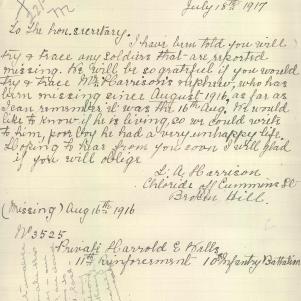 July 18th 1917
To the hon. secretary.
I have been told you will
try & trace any soldiers that are reported
missing. We will be so grateful if you would
try & trace Mrs Harrison's nephew, who has
been missing since August 1916, as far as
I can remember it was the 16th Aug. We would
like to know if he is living, so we could write
to him, poor boy he had a very unhappy life.
Looping to hear from you soon I will glad
if you will oblige
L. A. Harrison
Chloride off Cummins St
Broken Hill.
(Missing) Aug 16th 1916
No 3525
Private Harrold E Wells
11th reinforcement 10th Infantry Battalion